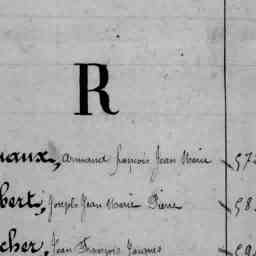 R
naux, Armand françois Jean Marie 57
bert, Joseph Jean Marie Pierre 58
cher, Jean François Jacques 59